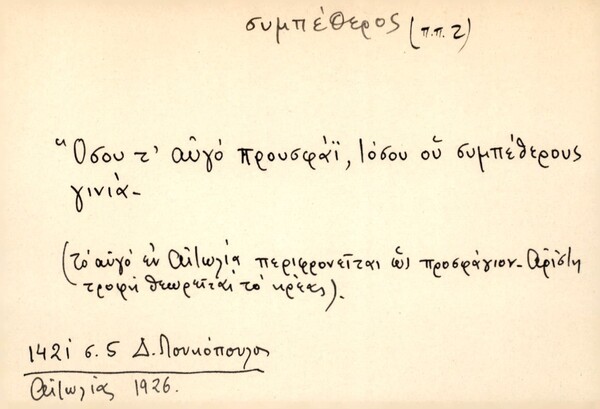 συμπέθερος (π.π. 2)
"Όσου τ' αὐγό προυσφάϊ, Ιόσου οὑ συμπέθερους
γινιά-
(το αὐγό ἐν Αἰτωλίᾳ περιφρονεῖται ὡς προσφάγιον - Αρίστη
τροφή θεωρεῖται τό κρέας).
1421 σ. 5 Δ. Λουκόπουλος
Αἰτωλίας 1926.